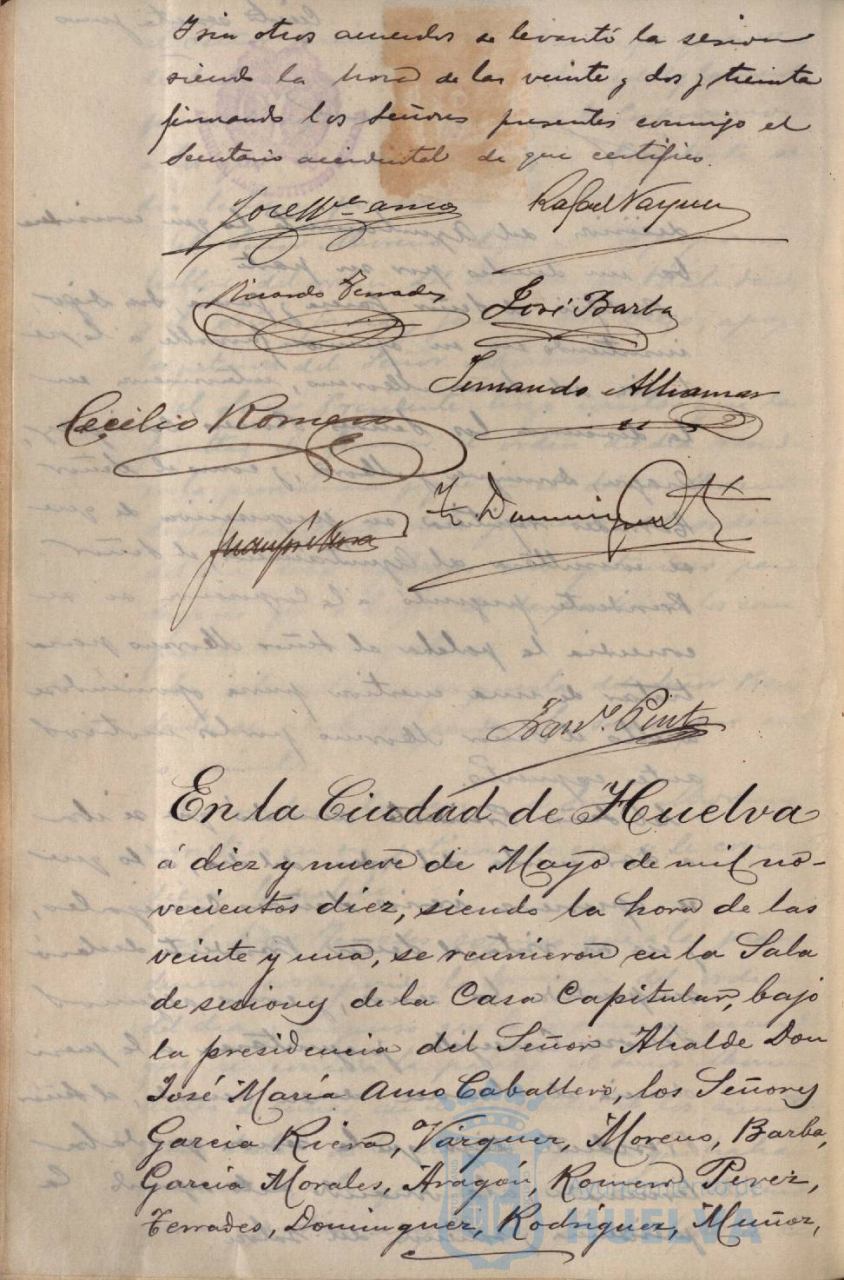 Y sin otros acuerdos se levantó la sesion
siendo la hora de las veinte y dos y treinta
firmando los Señores presentes conmigo el
Secretario accidental de que certifico.
José Mª Amo
Rafael Vazquez
Ricardo Terrades
José Barba
Fernando Alhamar
Cecilio Romero
Juan José Rosa
F. Dominguez
En la Ciudad de Huelva
á diez y nueve de Mayo de mil no-
vecientos diez, siendo la hora de las
veinte y una, se reunieron en la Sala
de sesiones de la Casa Capitular, bajo
la presidencia del Señor Alcalde Don
José María Amo Caballero, los Señores
Garcia Riera, Vázquez, Moreno, Barba,
Garcia Morales, Aragón, Romero Perez,
Terrades, Dominguez, Rodríguez, Muñoz,
HUELVA